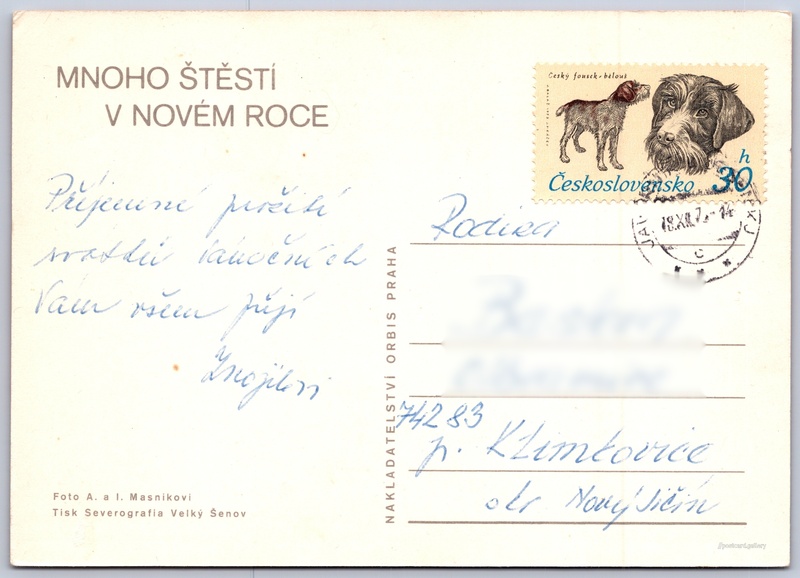 MNOHO ŠTĚSTÍ
V NOVÉM ROCE
Příjemné prožití
svátků vánočních
Vám všem přejí
Znojilovi
Foto A. a I. Masnikovi
Tisk Severografia Velký Šenov
NAKLADATELSTVÍ ORBIS PRAHA
Český fousek - bělouš
Československo
30 h
18.XII.7
Rodina
74283
p. Klimkovice
okr. Nový Jičín